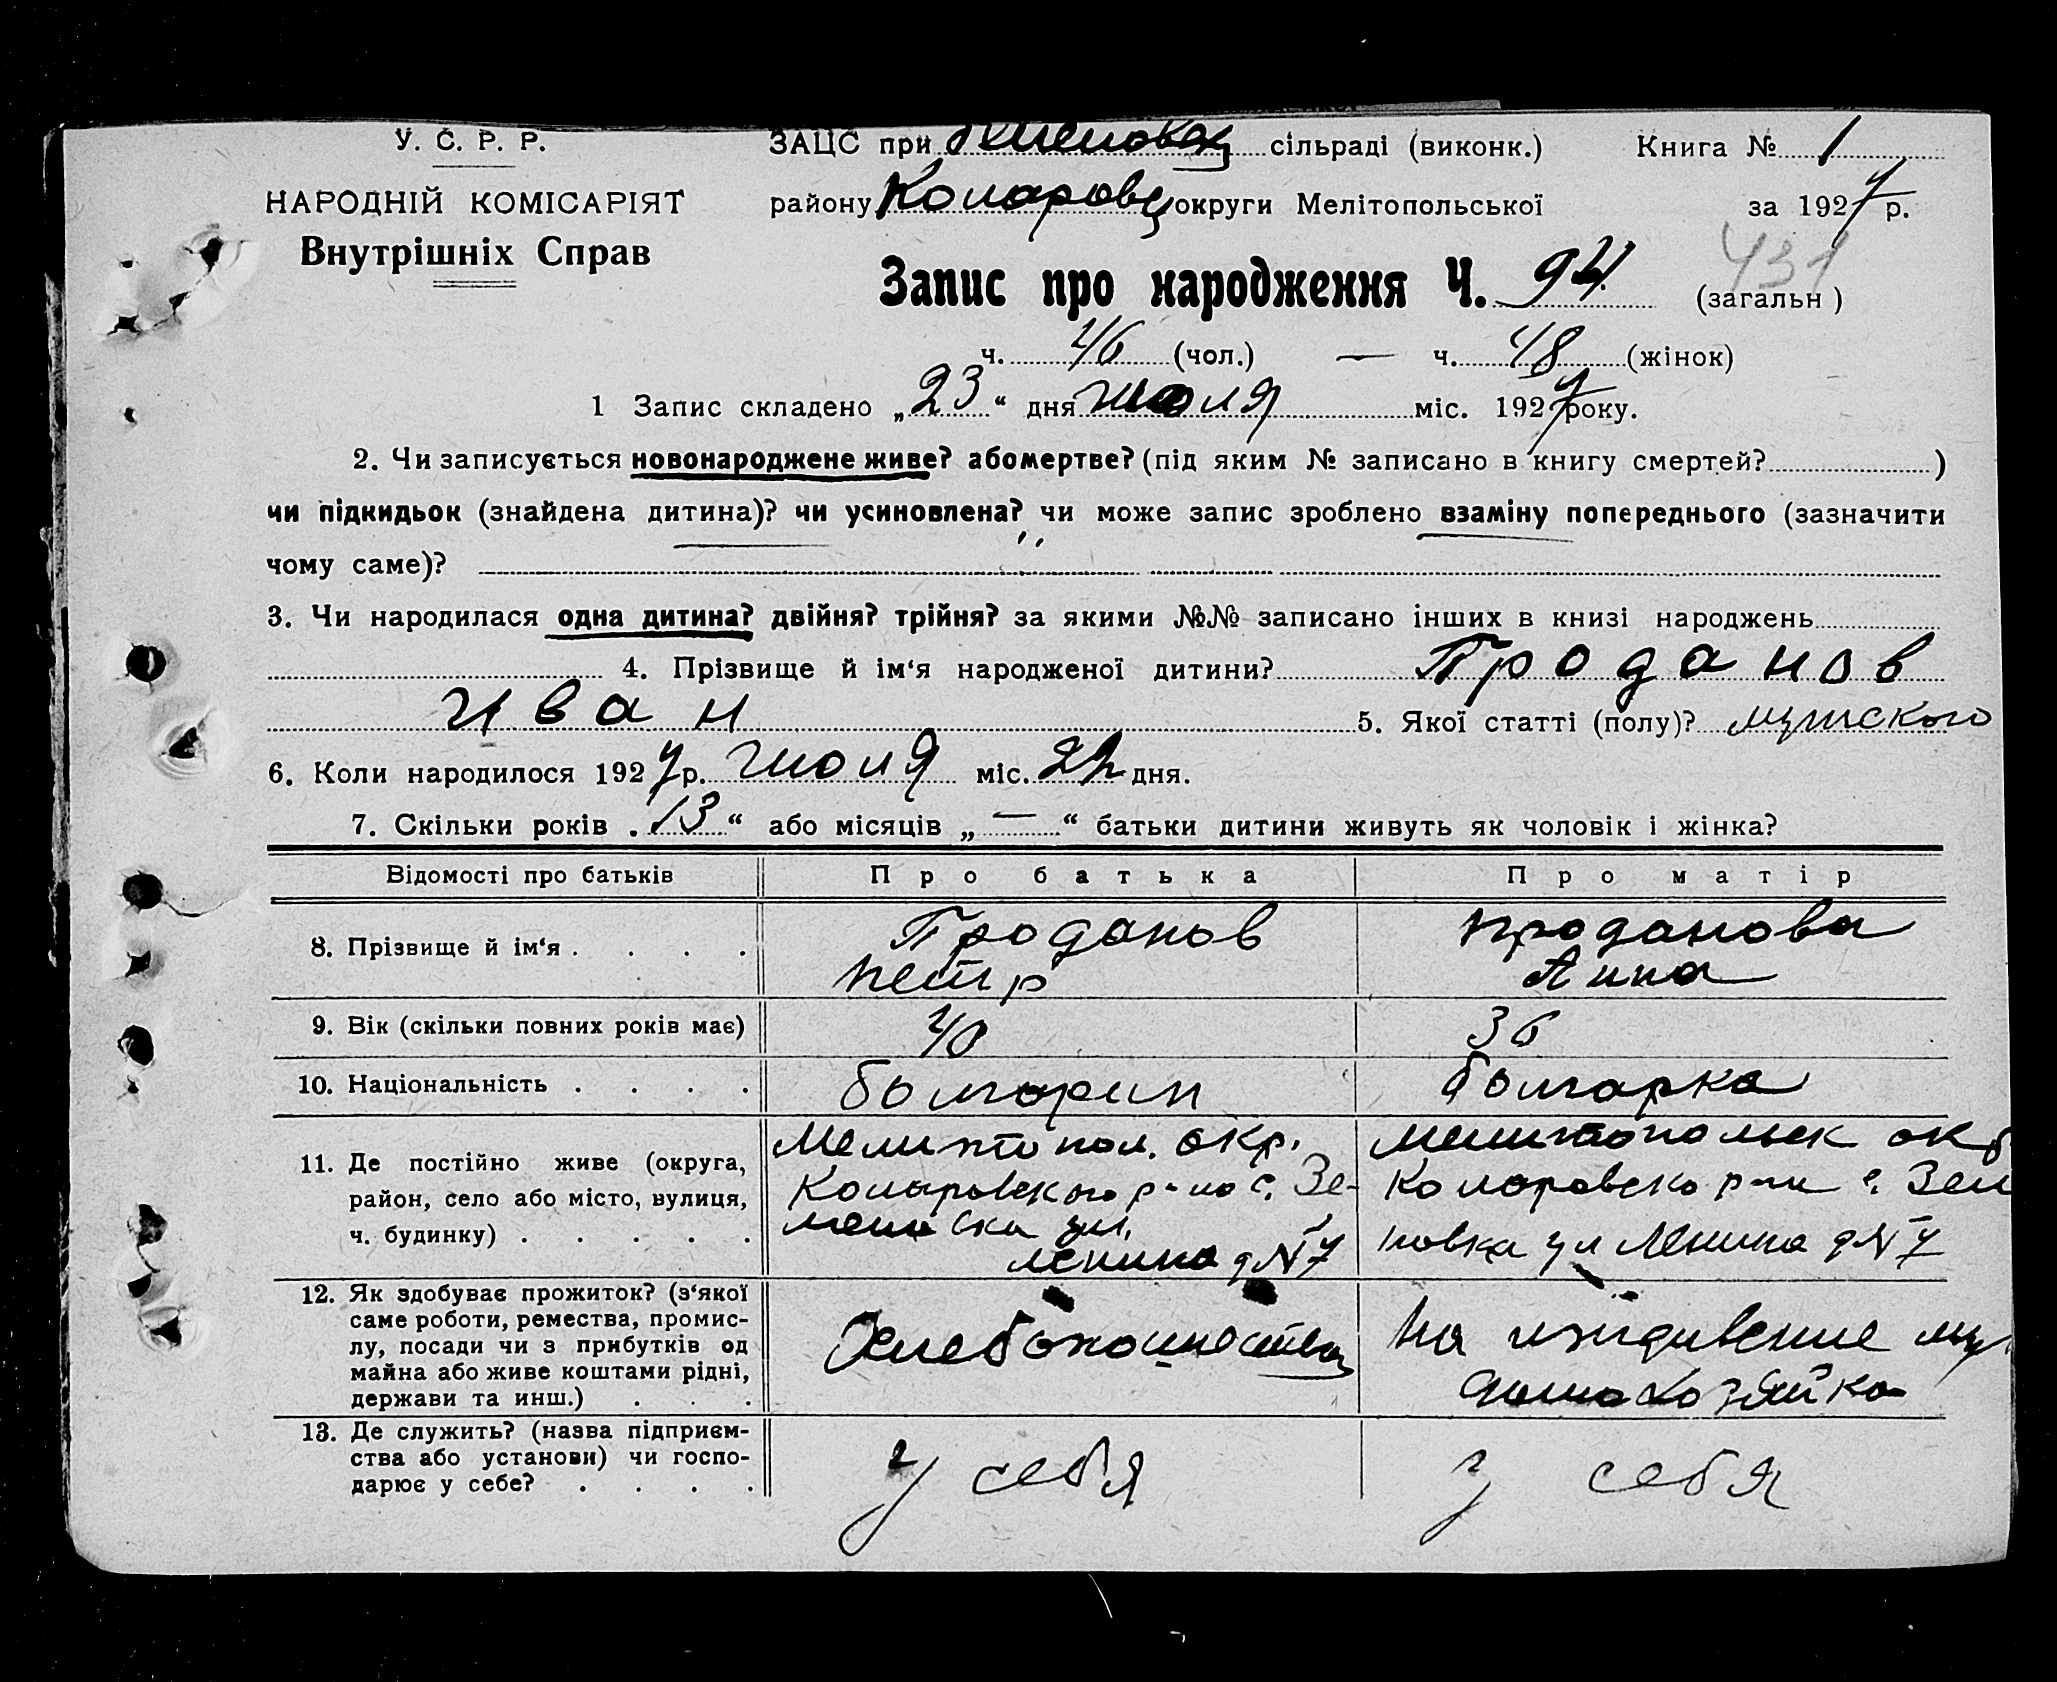 У. С. Р. Р.
НАРОДНІЙ КОМІСАРІЯТ
Внутрішніх Справ
ЗАЦС при сільраді (виконк.) Книга № 1
району Коларовц округи Мелітопольської за 1927 р.
431
Запис про народження Ч. 94 (загальн )
ч. 46 (чол.) — ч. 48 (жінок)
1 Запис складено „23“ дня июля міс. 1927 року.
2. Чи записується новонароджене живе? або мертве? (під яким № записано в книгу смертей? )
чи підкидьок (знайдена дитина)? чи усиновлена? чи може запис зроблено взаміну попереднього (зазначити
чому саме)?
3. Чи народилася одна дитина? двійня? трійня? за якими №№ записано інших в книзі народжень
4. Прізвище й ім‘я народженої дитини? Проданов
Иван 5. Якої статті (полу)? мужского
6. Коли народилося 1927 р. июля міс. 22 дня.
7. Скільки років „13“ або місяців „—“ батьки дитини живуть як чоловік і жінка?
Відомості про батьків Про батька Про матір
8. Прізвище й ім‘я . . . . Проданов Проданова
Петр Анна
9. Вік (скільки повних років має) 40 36
10. Національність . . . . болгарин болгарка
11. Де постійно живе (округа, Мелитопол. окр. Мелитопольск окр
район, село або місто, вулиця, Коларовского р-на с. Зе- Коларовско р-на с. Зел
ч. будинку) . . . . . ул. новка ул Ленина д N 7
ленина д N 7
12. Як здобуває прожиток? (з‘якої
саме роботи, ремества, промис-
лу, посади чи з прибутків од Хлебопашество На иждивение му
майна або живе коштами рідні,
держави та инш.) . . . домохозяйка
13. Де служить? (назва підприєм-
ства або установи) чи госпо- у себя у себя
дарює у себе? . . . .